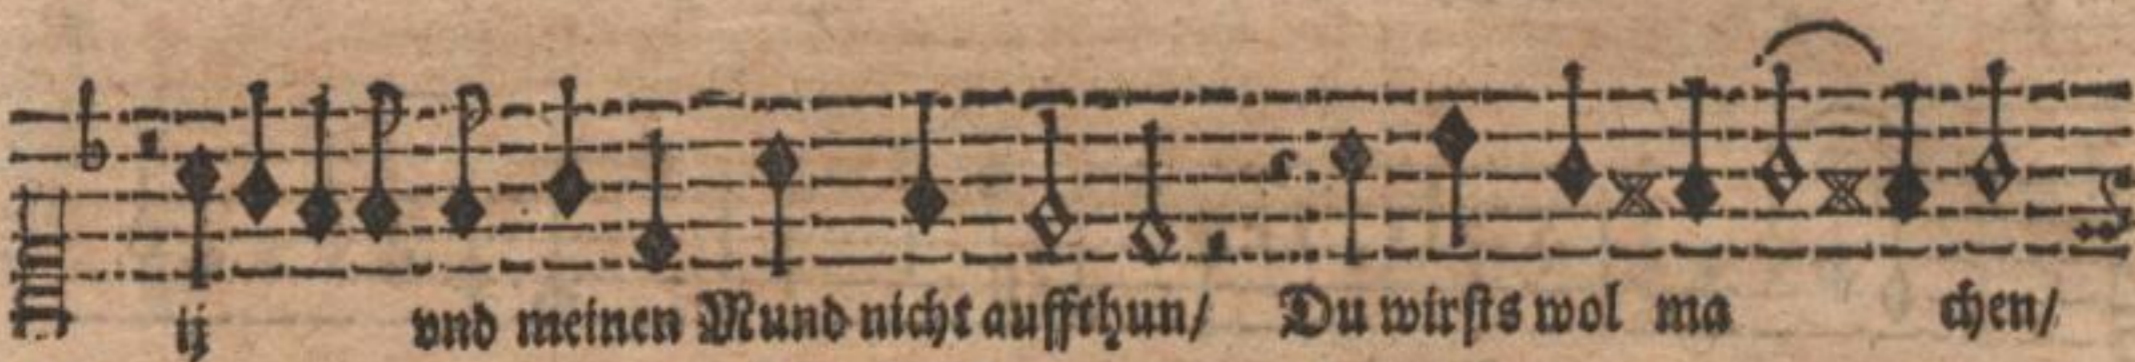 ij vnd meinen Mund nicht auffthun/ Du wirſts wol ma chen/